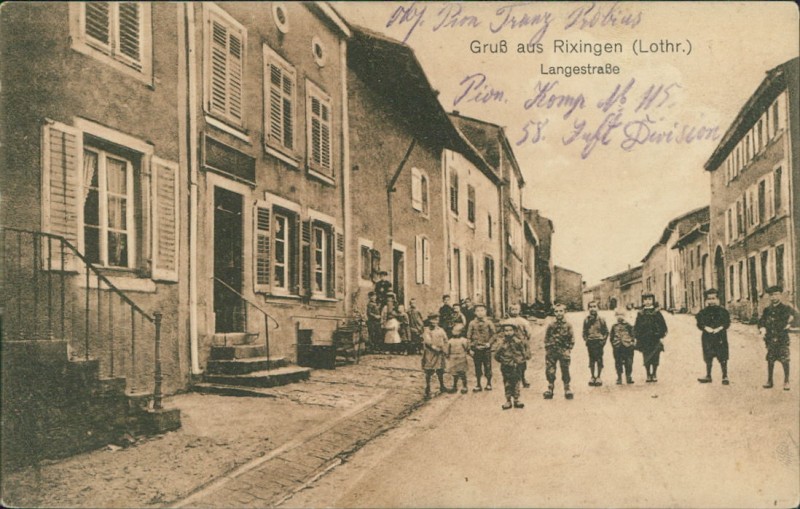 Pion Franz Probius
Gruß aus Rixingen (Lothr.)
Langestraße
Pion. Komp No 115.
58. Inft Division